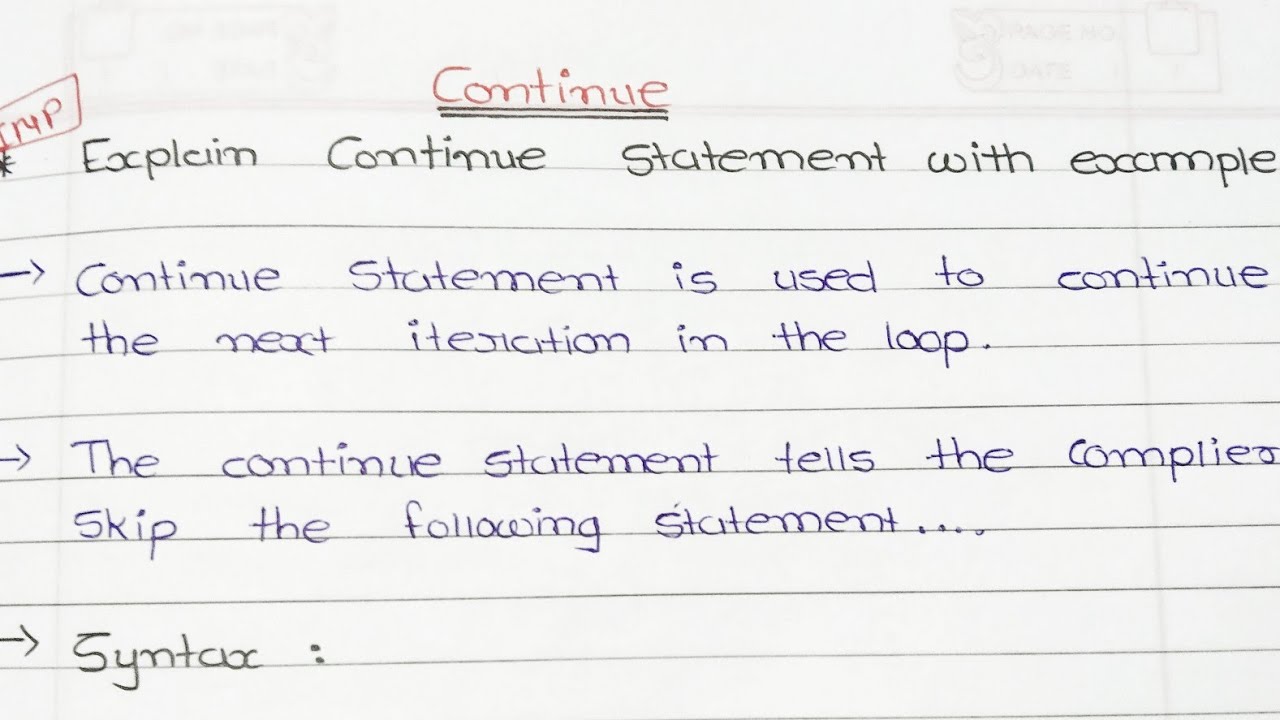 Continue
IMP
* Explain Continue Statement with example
→ Continue Statement is used to continue
the next iteration in the loop.
→ The continue statement tells the complier
Skip the following statement....
→ Syntax :
PAGE NO
DATE